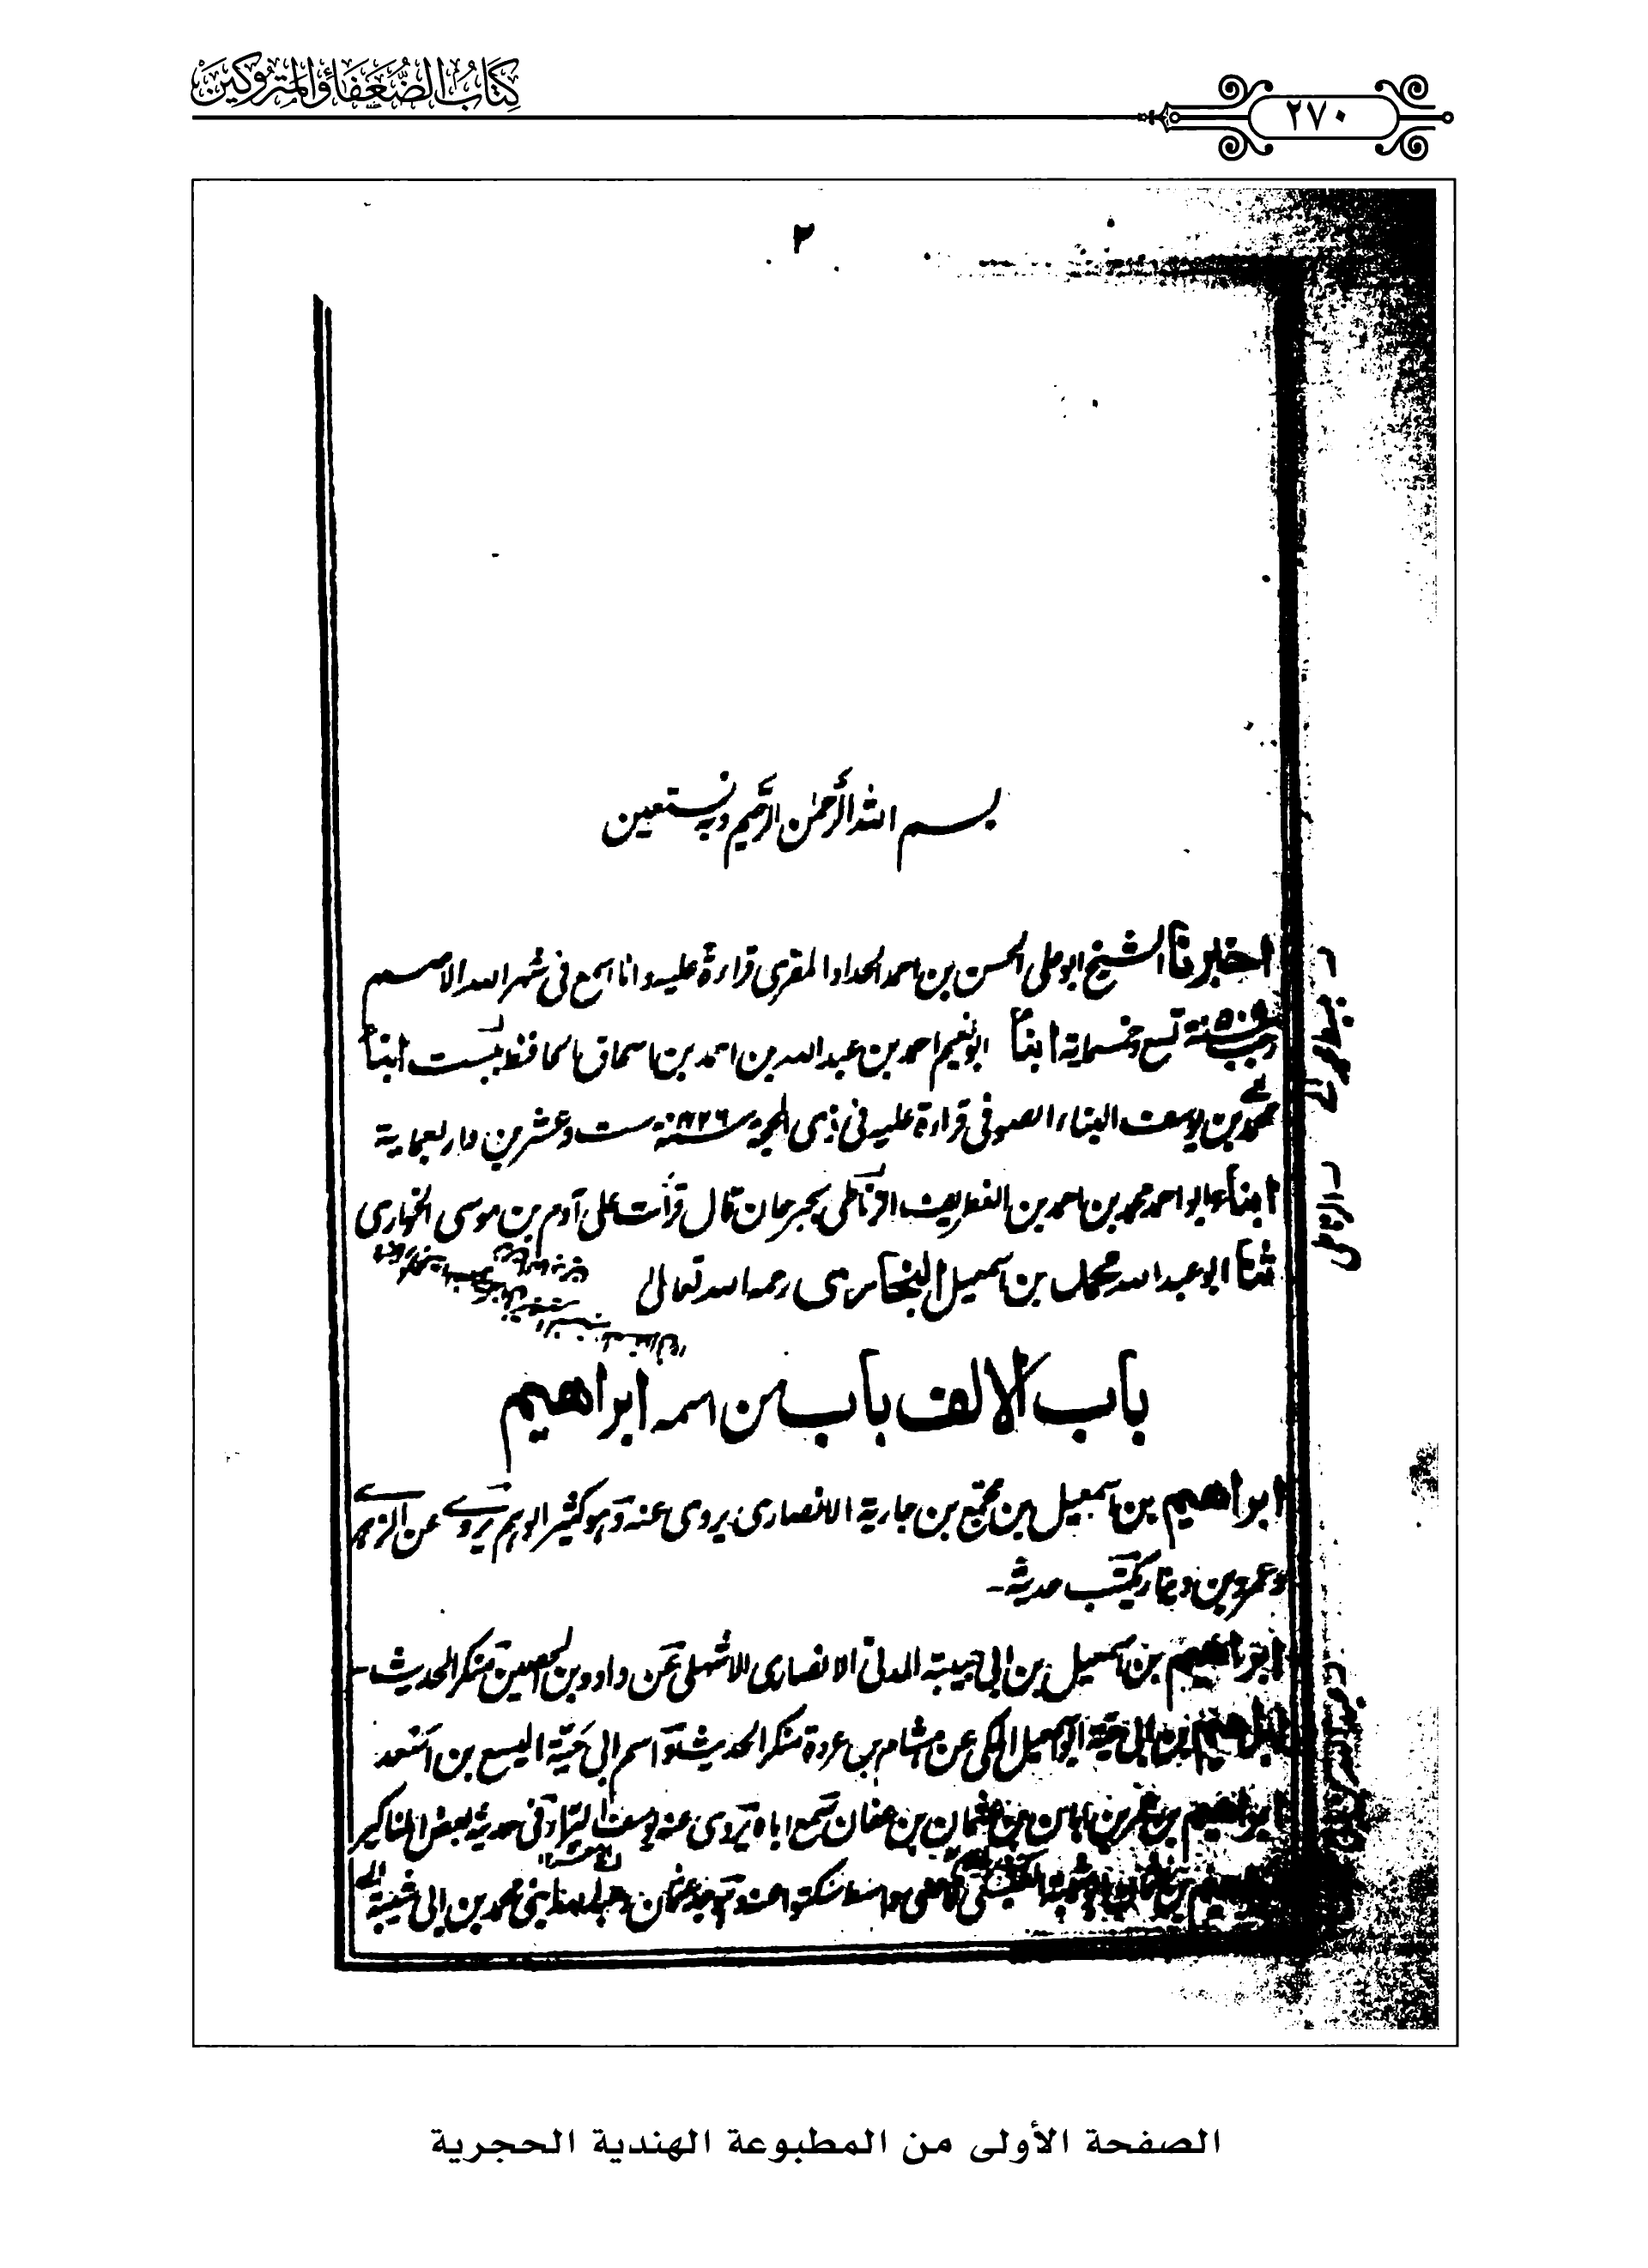 كتاب الضعفاء والمتروكين
٢٧٠
٢
بسم الله الرحمن الرحيم وبه نستعين
اخبرنا الشيخ ابو علی الحسن بن احمد الحداد المقری قراءة علیه وانا اسمع فی شهر الله الاصم
رجب سنة ٥٠٩ تسع وخمسماية انبأ ابو نعیم احمد بن عبد الله بن احمد بن اسحاق الحافظ انبأ
محمد بن یوسف البناء الصوفی قراءة علیه فی ذی الحجة سنة ست وعشرین واربعمایة
انبأ ابو احمد محمد بن احمد بن الغطریف بجرجان قال قرأت علی آدم بن موسی الخواری
ثنا ابو عبد الله محمد بن اسمعیل البخاری رحمه الله تعالی
باب الالف باب من اسمه ابراهیم
ابراهیم بن اسمعیل بن مجمع بن جاریة الانصاری یروی عنه وهو کثیر الوهم یروے عن الزهرے
وعمرو بن دینار یکتب حدیثه-
ابراهیم بن اسمعیل بن ابی حبیبة المدنی الانصاری الاشهلی عن داود بن الحصین منکر الحدیث-
ابراهیم بن ابی حیة ابو اسمعیل المکی عن هشام بن عروة منکر الحدیث واسم ابی حیة الیسع بن اسعد
ابراهیم بن عمر بن ابان بن عثمان بن عفان سمع اباه یروی عنه یوسف البراء وفی حدیثه بعض المناکیر
ابراهیم بن عثمان ابو شیبة قاضی واسط سکتوا عنه وهو جد عثمان وعبد الله ابنی محمد بن ابی شیبة
الصفحة الأولى من المطبوعة الهندية الحجرية